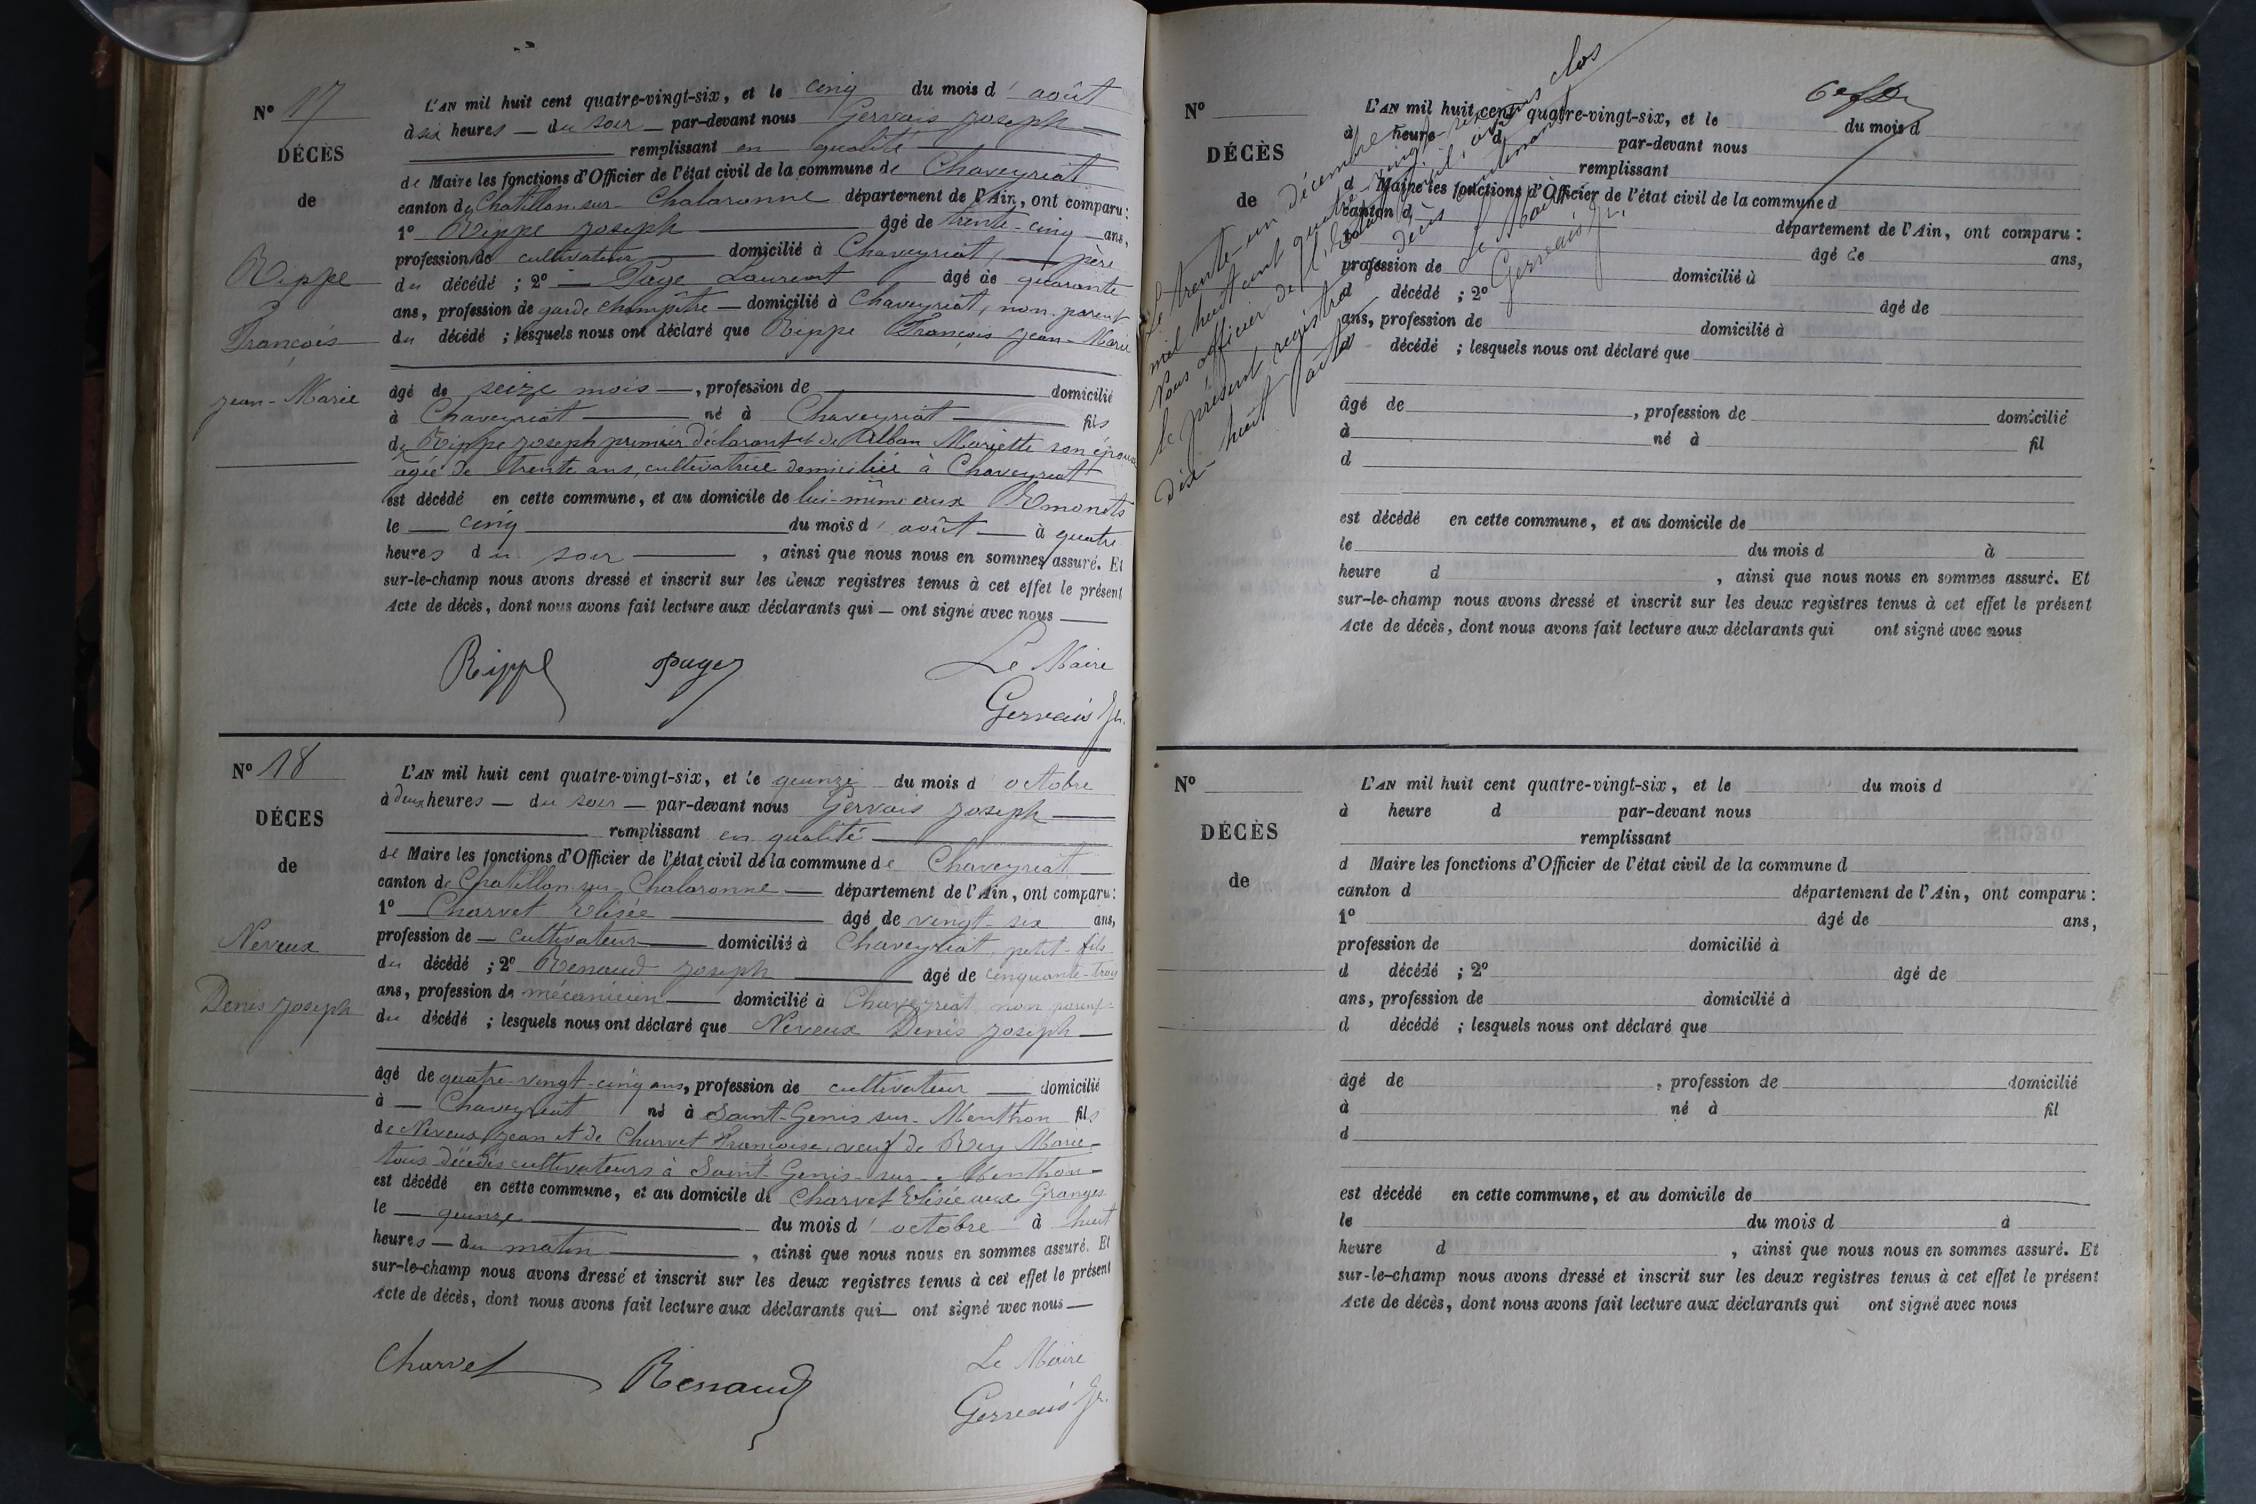 N° 17
DÉCÈS
de
Rippe
François
Jean-Marie
L'AN mil huit cent quatre-vingt-six, et le cinq du mois d'août
à six heures — du soir — par-devant nous Gervais Joseph —
remplissant en qualité
de Maire les fonctions d'Officier de l'état civil de la commune de Chaveyriat
canton de Chatillon-sur-Chalaronne département de l'Ain, ont comparu :
1° Rippe Joseph — âgé de trente-cinq ans,
profession de cultivateur — domicilié à Chaveyriat, — père
du décédé ; 2° — Page Laurent âgé de quarante
ans, profession de garde champêtre — domicilié à Chaveyriat, non parent
du décédé ; lesquels nous ont déclaré que Rippe François Jean-Marie
âgé de seize mois —, profession de — domicilié
à Chaveyriat — né à Chaveyriat — fils
de Rippe Joseph premier déclarant et de Alban Mariette son épouse
agée de trente ans, cultivatrice domiciliée à Chaveyriat
est décédé en cette commune, et au domicile de lui-même aux Emonets
le — cinq — du mois d'août — à quatre
heures du soir —, ainsi que nous nous en sommes assuré. Et
sur-le-champ nous avons dressé et inscrit sur les deux registres tenus à cet effet le présent
Acte de décès, dont nous avons fait lecture aux déclarants qui — ont signé avec nous —
Rippe Page Le Maire
Gervais Jh.
N° 18
DÉCES
de
Neveux
Denis Joseph
L'AN mil huit cent quatre-vingt-six, et le quinze du mois d'octobre
à deux heures — du soir — par-devant nous Gervais Joseph —
remplissant en qualité —
de Maire les fonctions d'Officier de l'état civil de la commune de Chaveyriat
canton de Chatillon-sur-Chalaronne — département de l'Ain, ont comparu :
1° Charvet Elisée — âgé de vingt-six ans,
profession de — cultivateur — domicilié à Chaveyriat, petit-fils
du décédé ; 2° Renaud Joseph — âgé de cinquante-trois
ans, profession de mécanicien — domicilié à Chaveyriat non parent
du décédé ; lesquels nous ont déclaré que Neveux Denis Joseph —
âgé de quatre-vingt-cinq ans, profession de cultivateur — domicilié
à — Chaveyriat né à Saint-Genis-sur-Menthon fils
de Neveux Jean et de Charvet Françoise, veuf de Rey Marie —
tous décédés cultivateurs à Saint-Genis-sur-Menthon —
est décédé en cette commune, et au domicile de Charvet Elisée aux Granges
le — quinze — du mois d'octobre à huit
heures — du matin —, ainsi que nous nous en sommes assuré. Et
sur-le-champ nous avons dressé et inscrit sur les deux registres tenus à cet effet le présent
Acte de décès, dont nous avons fait lecture aux déclarants qui — ont signé avec nous —
Charvet Renaud Le Maire
Gervais Jh.
N°
DÉCÈS
de
L'AN mil huit cent quatre-vingt-six, et le du mois d
à heure d par-devant nous
remplissant
d Maire les fonctions d'Officier de l'état civil de la commune d
canton d département de l'Ain, ont comparu :
1° âgé de ans,
profession de domicilié à
d décédé ; 2° âgé de
ans, profession de domicilié à
d décédé ; lesquels nous ont déclaré que
âgé de , profession de domicilié
à né à fil
d
est décédé en cette commune, et au domicile de
le du mois d à
heure d , ainsi que nous nous en sommes assuré. Et
sur-le-champ nous avons dressé et inscrit sur les deux registres tenus à cet effet le présent
Acte de décès, dont nous avons fait lecture aux déclarants qui ont signé avec nous
Le trente-un décembre
mil huit cent quatre-vingt-six
Nous officier de l'état civil, avons clos
le présent registre des décès contenant
dix-huit actes Le Maire
Gervais Jh.
N°
DÉCÈS
de
L'AN mil huit cent quatre-vingt-six, et le du mois d
à heure d par-devant nous
remplissant
d Maire les fonctions d'Officier de l'état civil de la commune d
canton d département de l'Ain, ont comparu :
1° âgé de ans,
profession de domicilié à
d décédé ; 2° âgé de
ans, profession de domicilié à
d décédé ; lesquels nous ont déclaré que
âgé de , profession de domicilié
à né à fil
d
est décédé en cette commune, et au domicile de
le du mois d à
heure d , ainsi que nous nous en sommes assuré. Et
sur-le-champ nous avons dressé et inscrit sur les deux registres tenus à cet effet le présent
Acte de décès, dont nous avons fait lecture aux déclarants qui ont signé avec nous